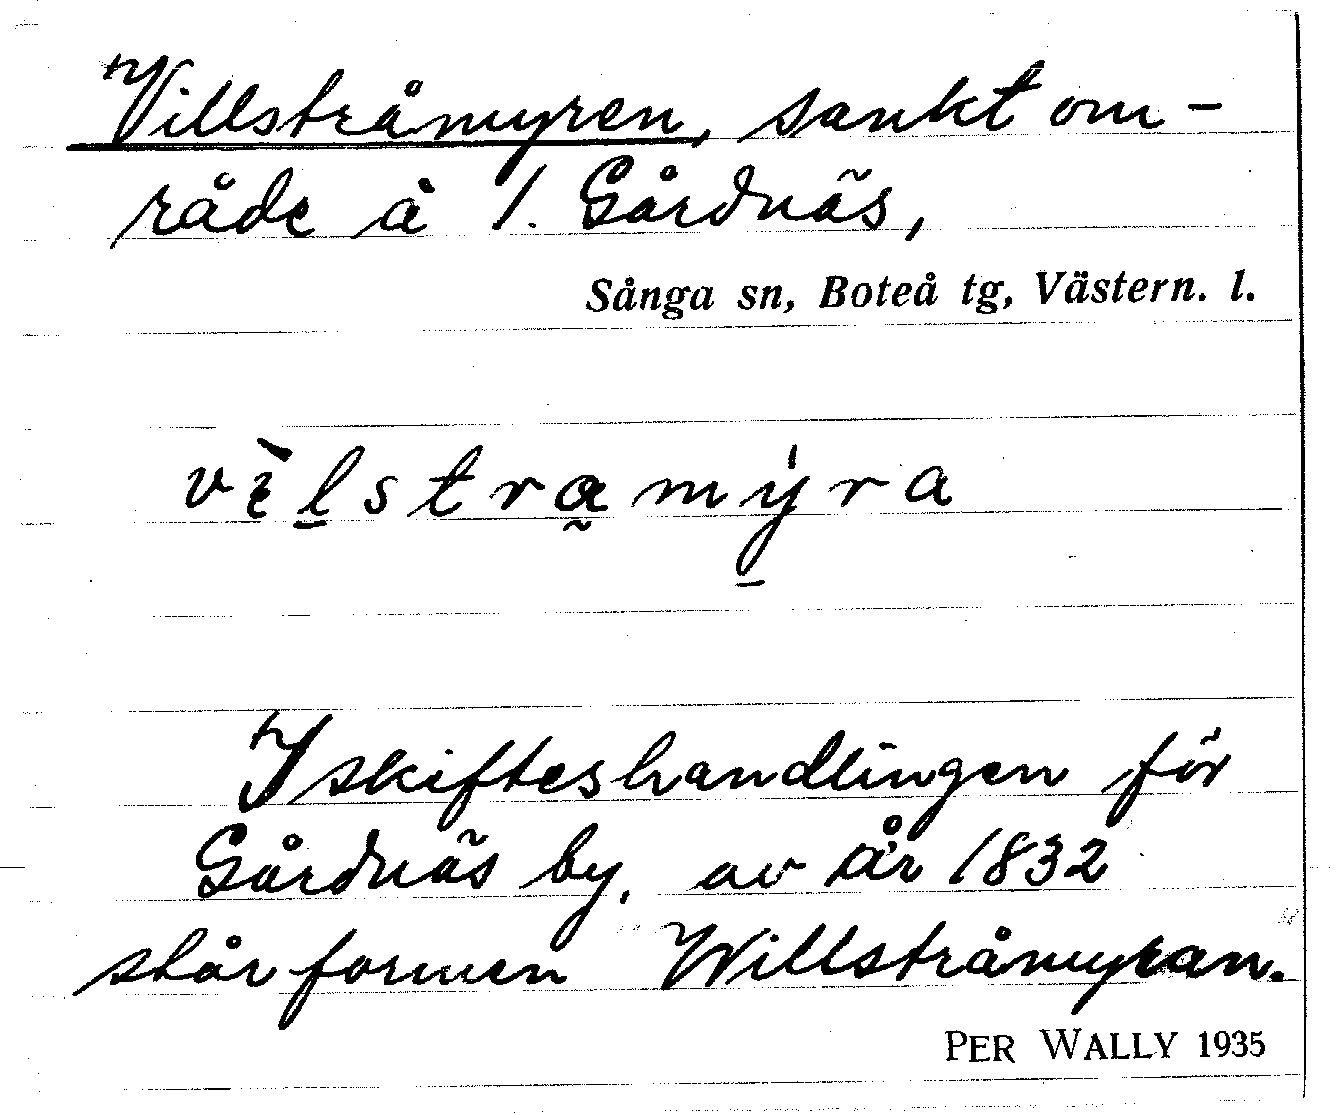 Villstråmyren, sankt om-
råde å 1. Gårdnäs,
Sånga sn, Boteå tg, Västern. l.
vìl̠strα̰mý̠ra
I skifteshandlingen för
Gårdnäs by, av år 1832
står formen Willstråmyran.
PER WALLY 1935